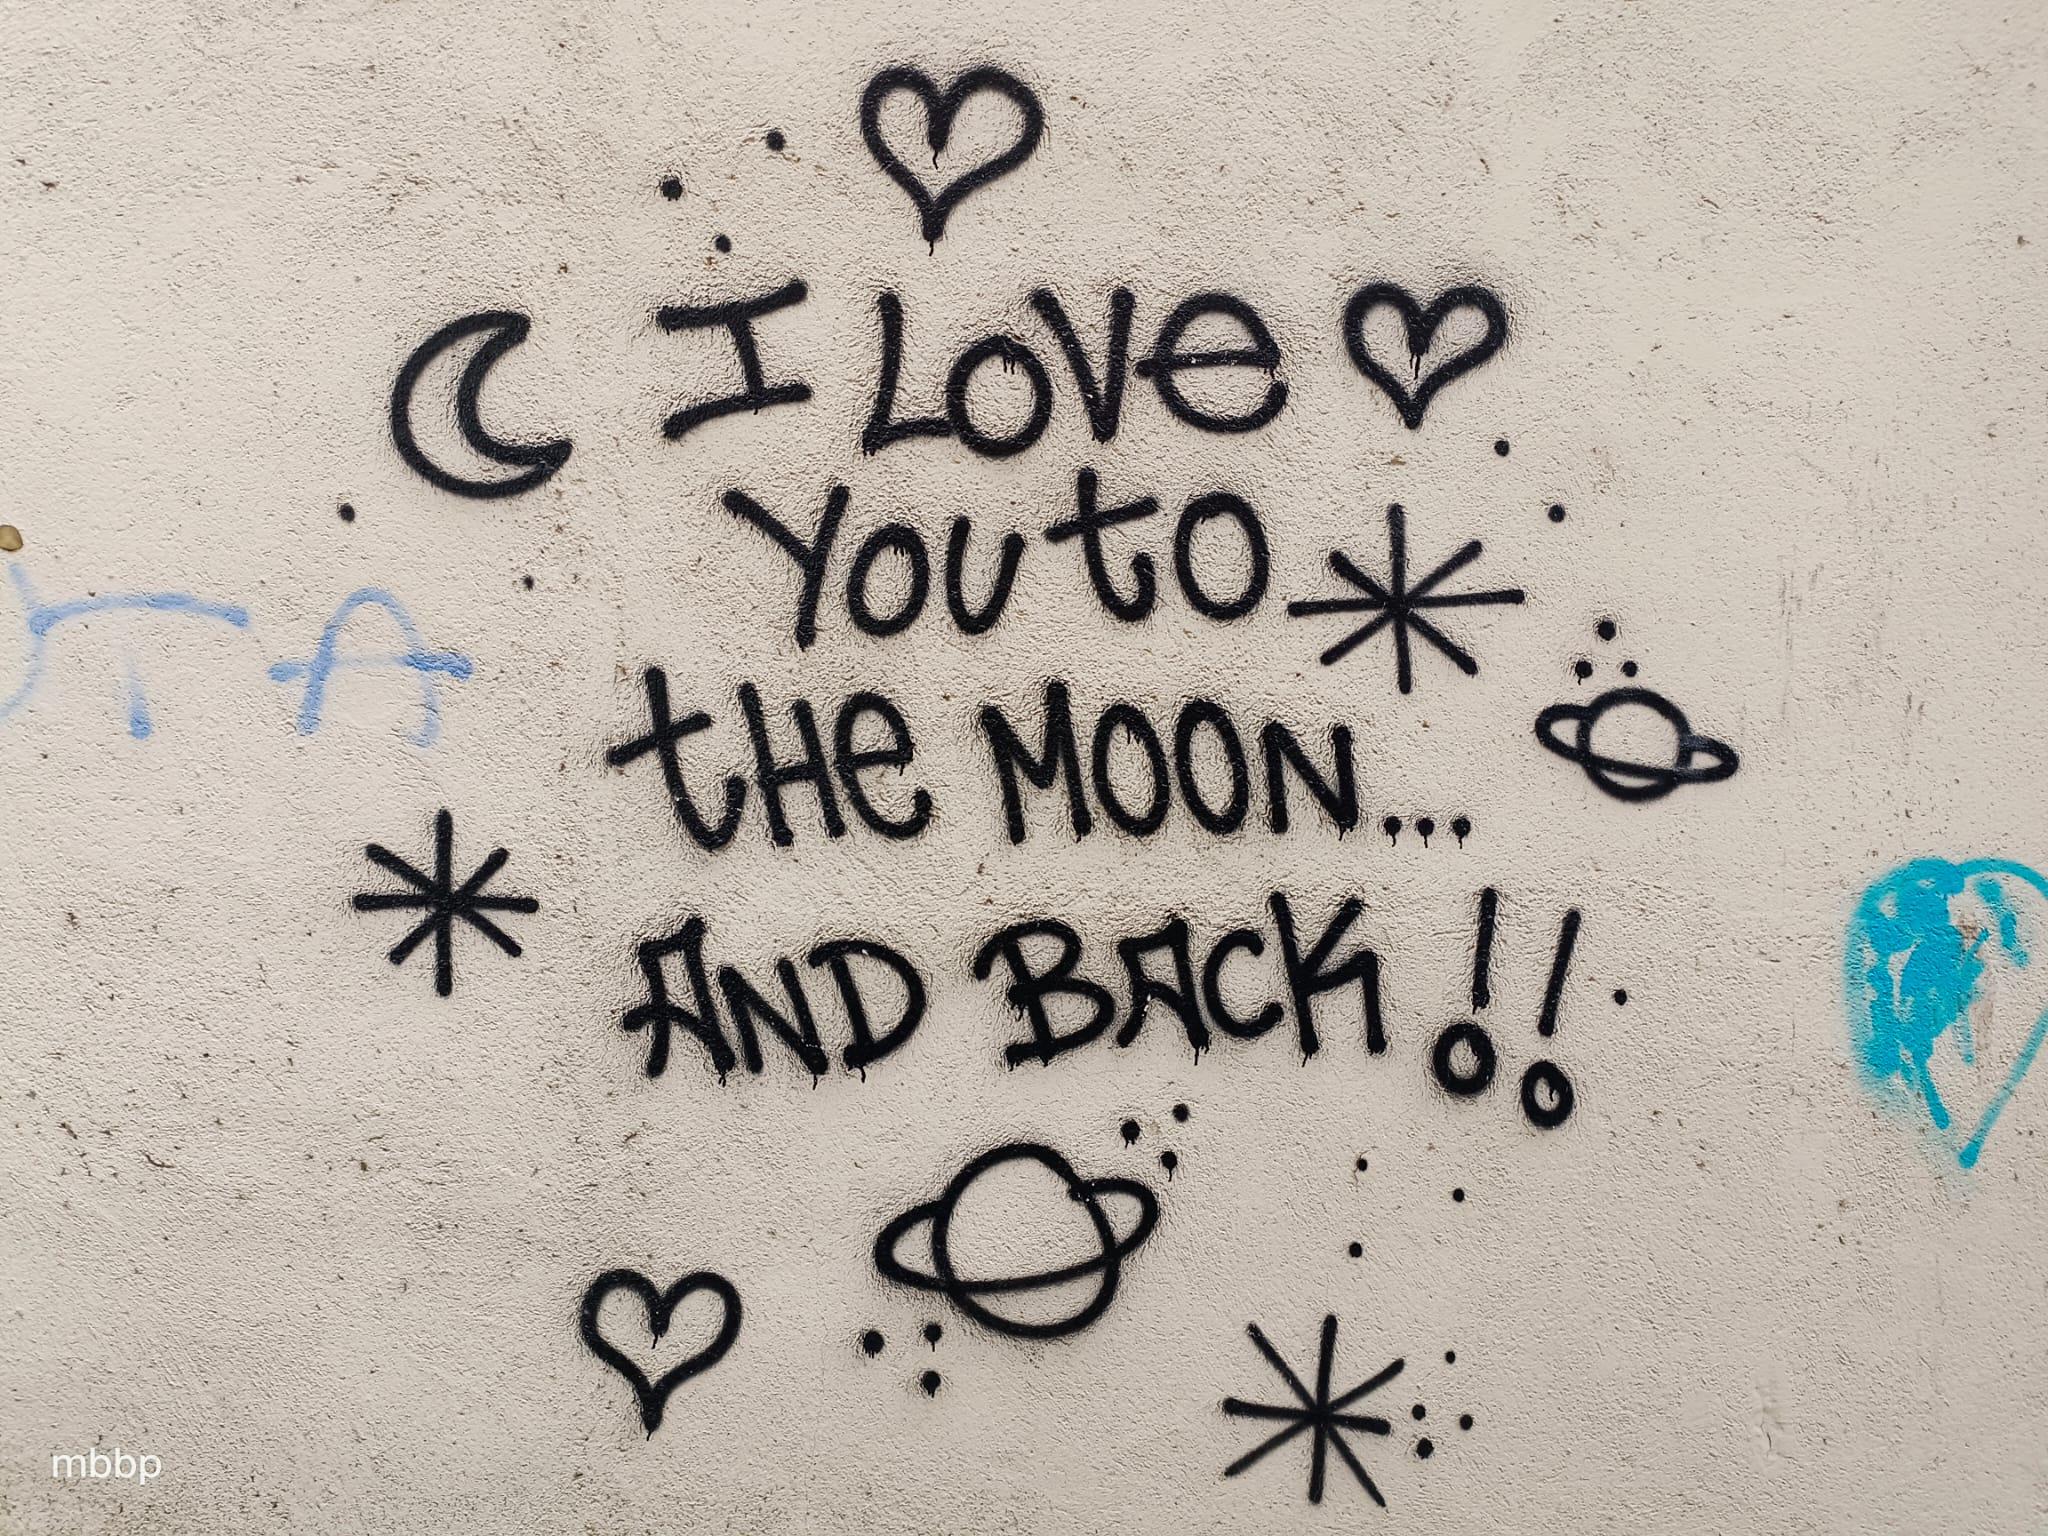 I LOVe
YOU tO
tHe MOON...
AND BACK!!
TA
mbbp